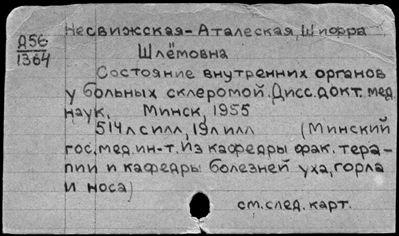 Несвижская-Аталеская, Шифра
Д56
1364
Шлёмовна
Состояние внутренних органов
у больных склеромой. Дисс. докт. мед.
наук. Минск, 1955
514л с илл, 19л илл (Минский
гос. мед. ин-т. Из кафедры фак. тера-
пии и кафедры болезней уха, горла
и носа)
см. след. карт.